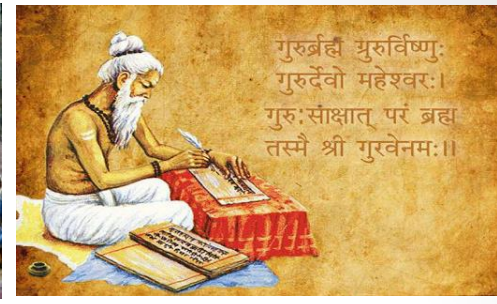 गुरुर्ब्रह्म ग्रुरुर्विष्णु:
गुरुर्देवो महेश्वर:।
गुरु:साक्षात् परं ब्रह्म
तस्मै श्री गुरवेनम:॥